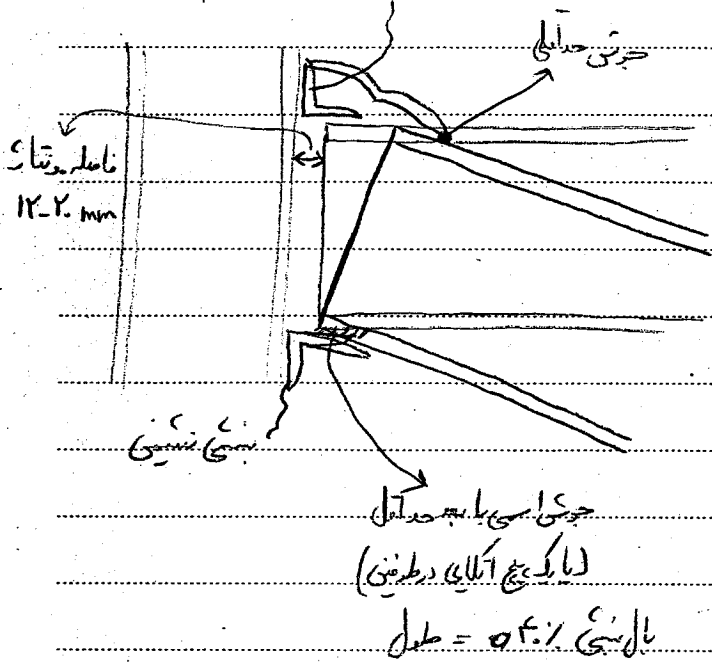 جوش حداقلی
فاصله مونتاژ
۱۲-۲۰ mm
نبشی نشیمن
جوش اسمی با بعد حداقل
(یا یک پیچ اتکایی در طرفین)
طول = ۴۰٪ بال نبشی